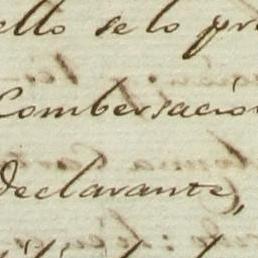 ello se lo pr
Combersacion
Declarante,